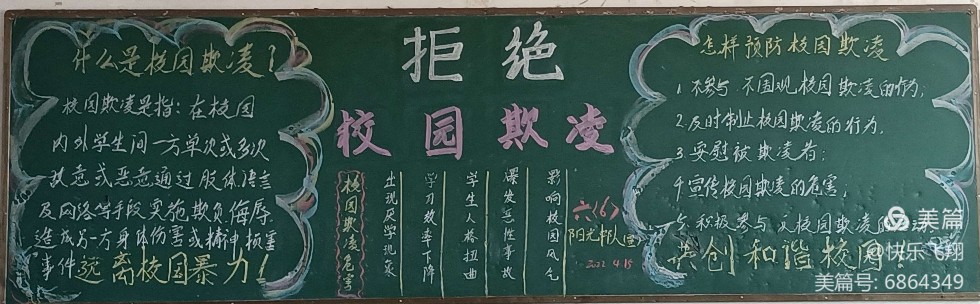 什么是校园欺凌？
校园欺凌是指：在校园
内外学生间一方单次或多次
故意或恶意通过肢体语言
及网络等手段实施欺负侮辱
造成另一方身体伤害或精神损害
事件 远离校园暴力！
拒绝
校园欺凌
校园欺凌危害
出现厌学现象
学习效率下降
学生人格扭曲
爆发恶性事故
影响校园风气
六(6)
阳光中队宣
2022.4.15
怎样预防校园欺凌
1.不参与 不围观校园欺凌的行为；
2.及时制止校园欺凌的行为.
3.安慰被欺凌者；
4.宣传校园欺凌的危害；
5.积极参与 校园欺凌的
共创和谐校园
美篇
@快乐飞翔
美篇号: 6864349